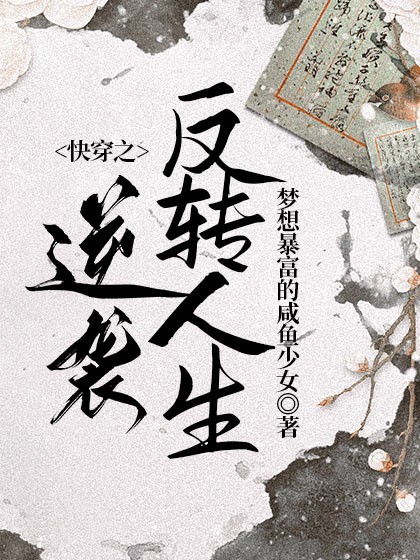 <快穿之>
逆袭
反转人生
梦想暴富的咸鱼少女◎著